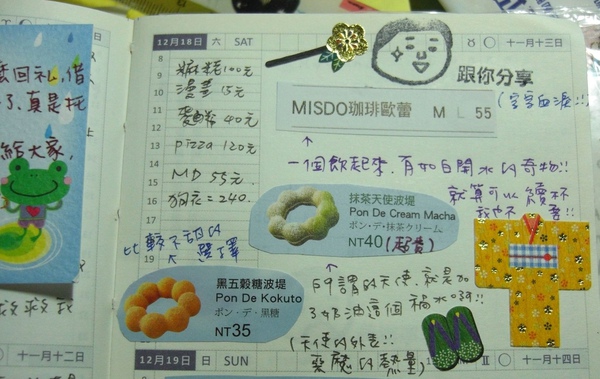 麼回礼,借
了,真是托
給大家,
12月18日 六 SAT
十一月十三日
8
9
10
11
12
13
14
15
16
麻糬100元
漫畫15元
40元
pizza 120元
MD 55元
=240.
跟你分享
MISDO珈琲歐蕾 M L 55
(字字血淚!!
↑
一個飲起來,有如白開水的奇物!!
就算可以續杯
我也不 要!!
抹茶天使波堤
Pon De Cream Macha
ポン・デ・抹茶クリーム
NT40 (超貴)
比較不甜的
選擇
19
黑五穀糖波堤
Pon De Kokuto
ポン・デ・黒糖
NT35
↑
所謂的天使,就是加
了奶油這個 禍水啊!!
(天使的外表!!
惡魔的熱量)
救救我
十一月十二日
12月19日 日 SUN
十一月十四日